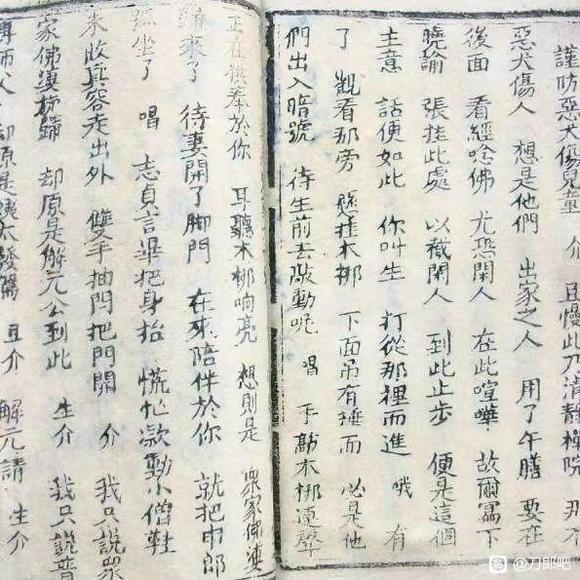 謹防惡犬傷兒童　介　且慢此乃清靜禪院　那有
惡犬傷人　想是他們　出家之人　用了午膳　要在
後面　看經唸佛　尤恐閑人　在此喧嘩　故爾寫下
曉諭　張挂此處　以截閑人　到此止步　便是這個
主意　話便如此　你叫生　打從那裡而進　哦　有
了　觀看那旁　懸挂木梆　下面吊有捶而　必是他
們出入暗號　待生前去敲動呢　唱　手敲木梆連聲
正在供奉於你　耳聽木梆响亮　想則是　眾家佛婆
歸來了　待妻開了脚門　在來陪伴於你　就把申郎
坐了　唱　志貞言畢把身抬　慌忙款動小僧鞋
來收真容走出外　雙手抽閂把門開　介　我只說眾
家佛婆都歸　却原是解元公到此　生介　我只說普
却原是姨太發陽　旦介　解元請　生介
@刀郎吧